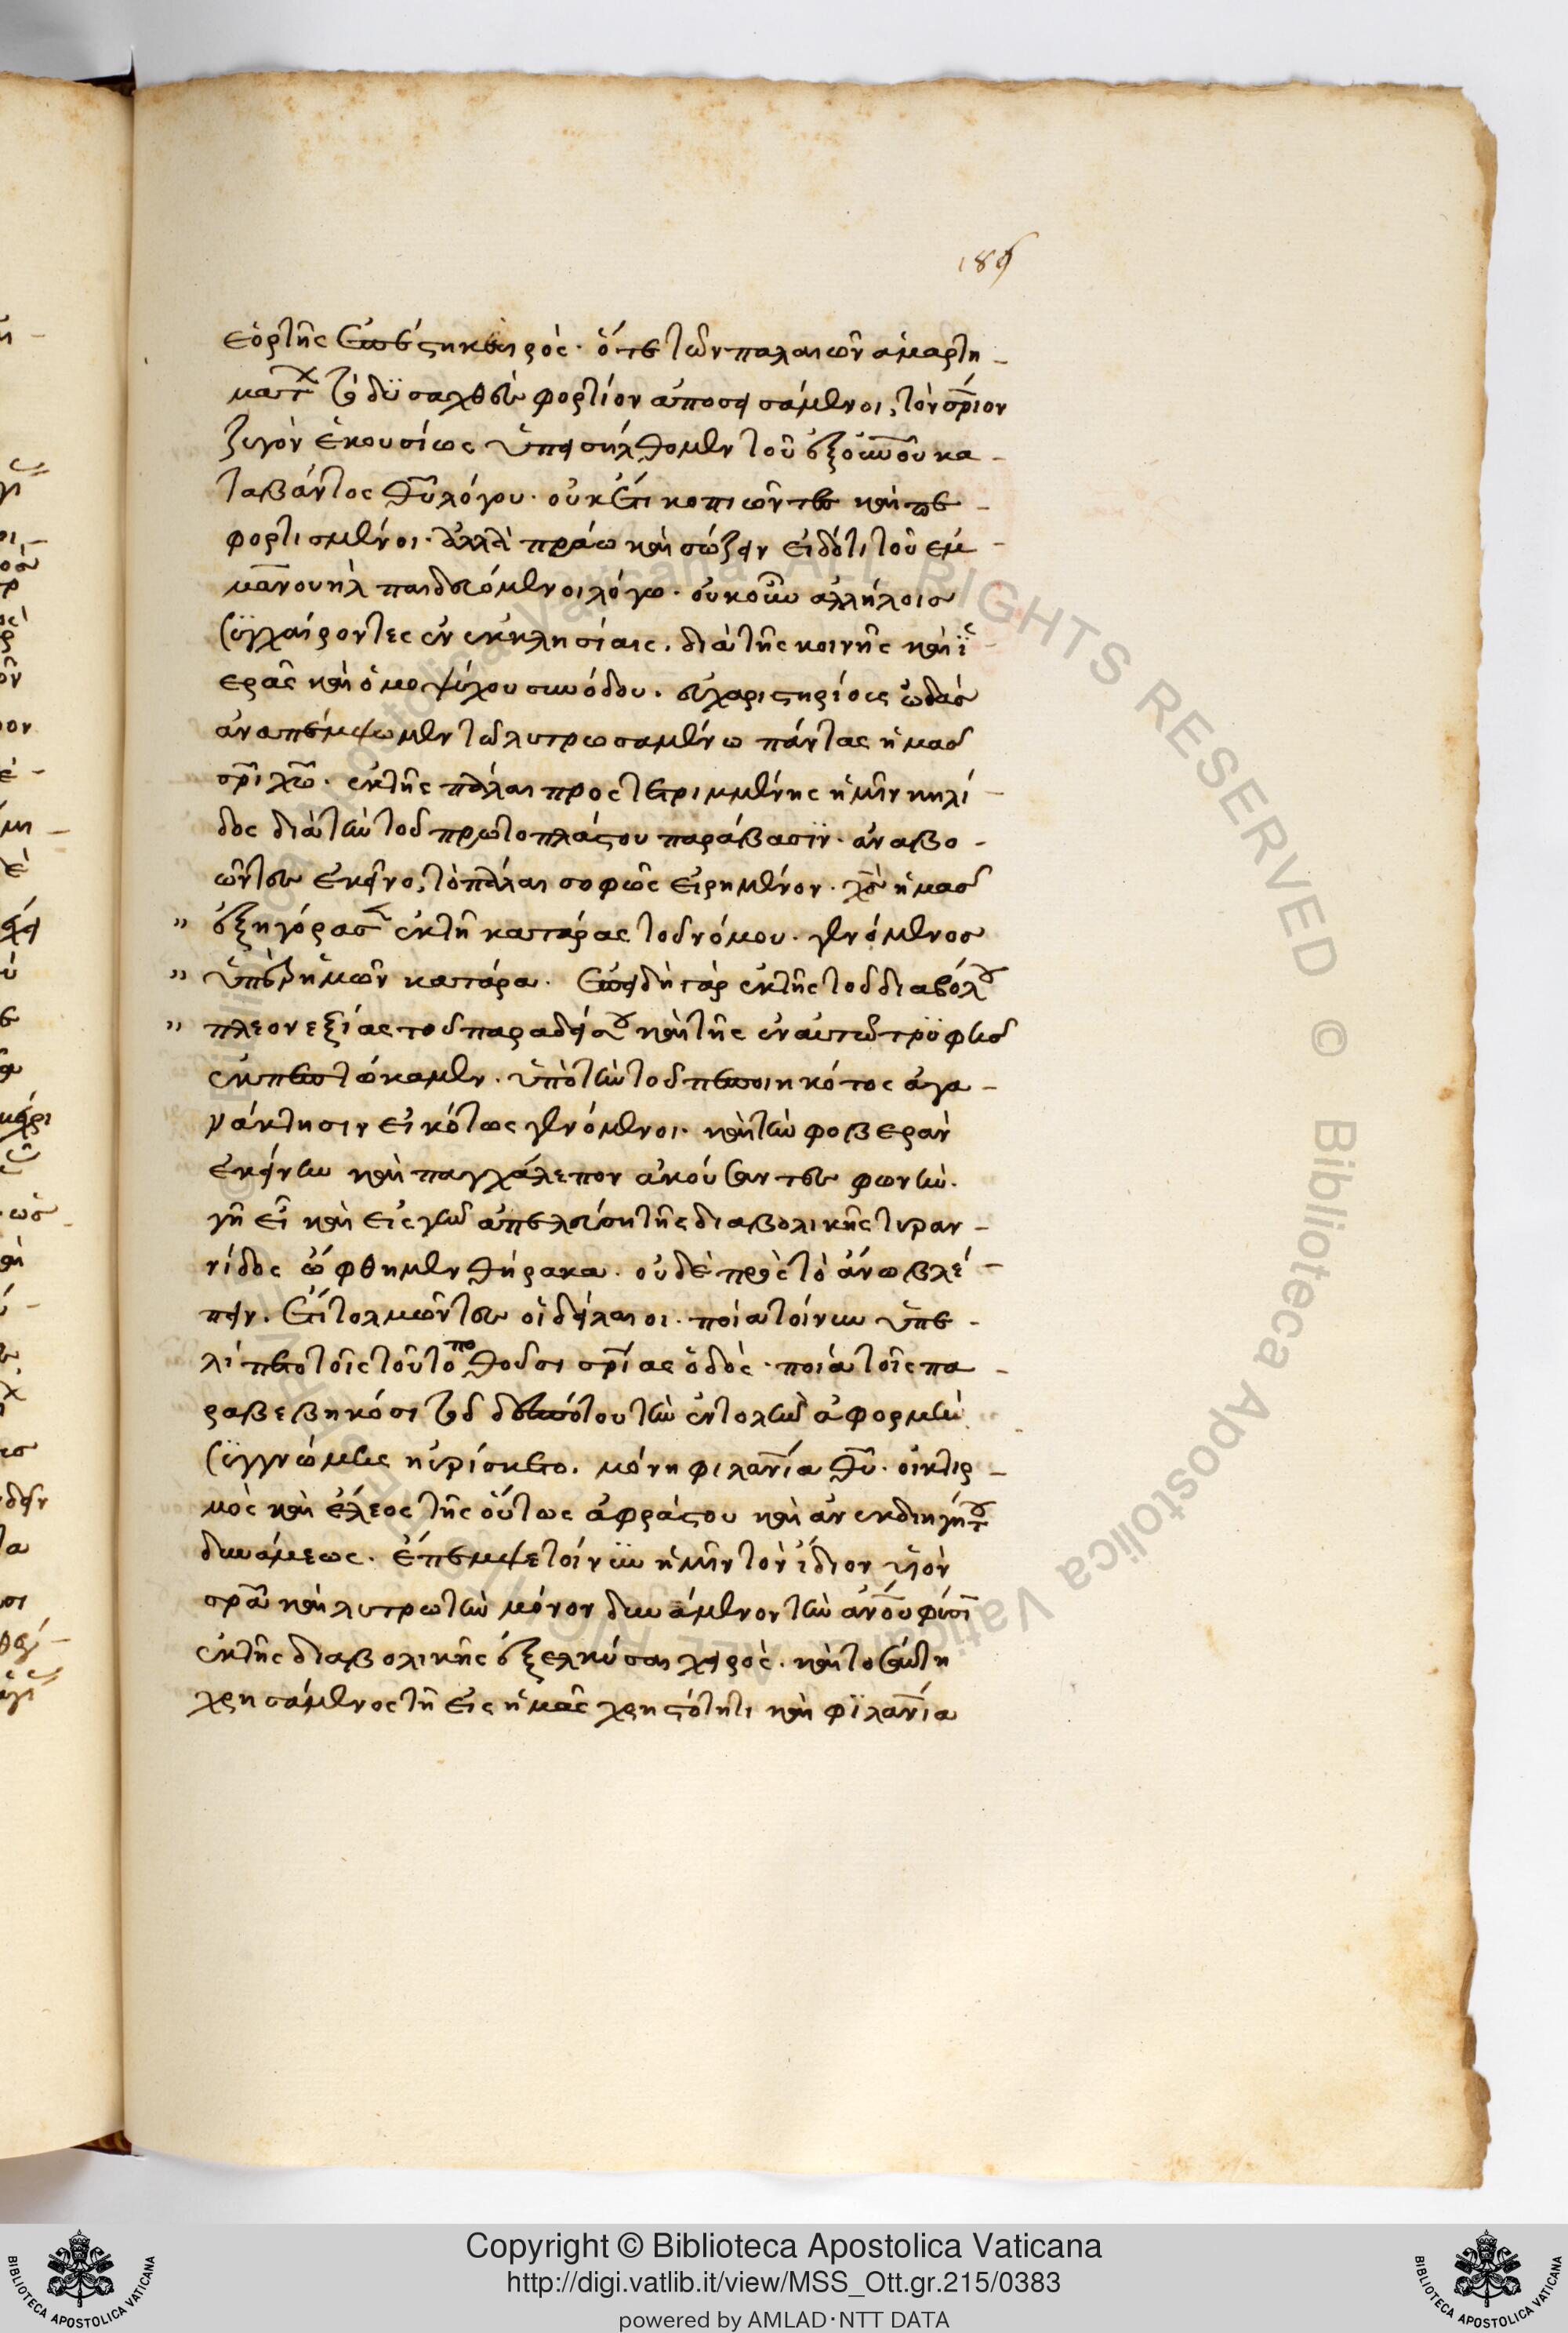 189
ἑορτῆς ἐπέστη καιρός· ὅτε τῶν παλαιῶν ἁμαρτη-
μάτ τὸ δυσαχθὲς φορτίον ἀποσεισάμενοι, τὸν σρίον
ζυγὸν ἑκουσίως ὑπεισήλθομεν τοῦ ἐξ οὐνοῦ κα-
ταβάντος θυ λόγου· οὐκ ἔτι κοπιῶντες καὶ πε-
φορτισμένοι· ἀλλὰ πράω καὶ σώζειν εἰδότι τοῦ ἐμ-
μανουὴλ παιδευόμενοι λόγω· οὐκοῦν ἀλλήλοις
συγχαίροντες ἐν ἐκκλησίαις, διὰ τῆς κοινῆς καὶ ἱ-
ερᾶς καὶ ὁμοψύχου συνόδου, εὐχαριστηρίους ὠδὰς
ἀναπέμψωμεν τῶ λυτρωσαμένω πάντας ἡμᾶς
σρι χω· ἐκ τῆς πάλαι προστετριμμένης ἡμῖν κηλί-
δος διὰ τὴν τοῦ πρωτοπλάστου παράβασιν· ἀναβο-
ῶντες ἐκεῖνο, τὸ πάλαι σοφῶς εἰρημένον· χς ἡμᾶς
" ἐξηγόρασ ἐκ τῆς κατάρας τοῦ νόμου· γενόμενος
" ὑπὲρ ἡμῶν κατάρα. Ἐπειδὴ γὰρ ἐκ τῆς τοῦ διαβόλου
" πλεονεξίας τοῦ παραδείσου καὶ τῆς ἐν αὐτῶ τρυφῆς
ἐκπεπτώκαμεν· ὑπὸ τὴν τοῦ πεποιηκότος ἀγα-
νάκτησιν εἰκότως γενόμενοι· καὶ τὴν φοβερὰν
ἐκείνην καὶ παγχάλεπον ἀκούσαντες φωνήν·
γῆ εἶ καὶ εἰς γῆν ἀπελεύση τῆς διαβολικῆς τυραν-
νίδος ὤφθημεν θήρακα· οὐδὲ πρὸς τὸ ἄνω βλέ-
πειν. ἔτι τολμῶντες οἱ δείλαιοι· ποία τοίνυν ὑπε-
λίπετο τοῖς τοῦτο ποθοῦσι σρίας ὁδός· ποία τοῖς πα-
ραβεβηκόσι τοῦ δεσπότου τὴν ἐντολὴν ἀφορμὴ
συγγνώμης ηὑρίσκετο. μόνη φιλανία θυ· οἰκτιρ-
μὸς καὶ ἔλεος τῆς οὕτως ἀφράστου καὶ ἀνεκδιηγήτου
δυνάμεως. ἔπεμψε τοίνυν ἡμῖν τὸν ἴδιον υἱὸν
σρα καὶ λυτρωτὴν μόνον δυνάμενον τὴν ἀνου φύσι
ἐκ τῆς διαβολικῆς ἐξελκύσαι χειρός. καὶ τοσαύτη
χρησάμενος τῆ εἰς ἡμᾶς χρηστότητι καὶ φιλανία
Copyright © Biblioteca Apostolica Vaticana
http://digi.vatlib.it/view/MSS_Ott.gr.215/0383
powered by AMLAD·NTT DATA